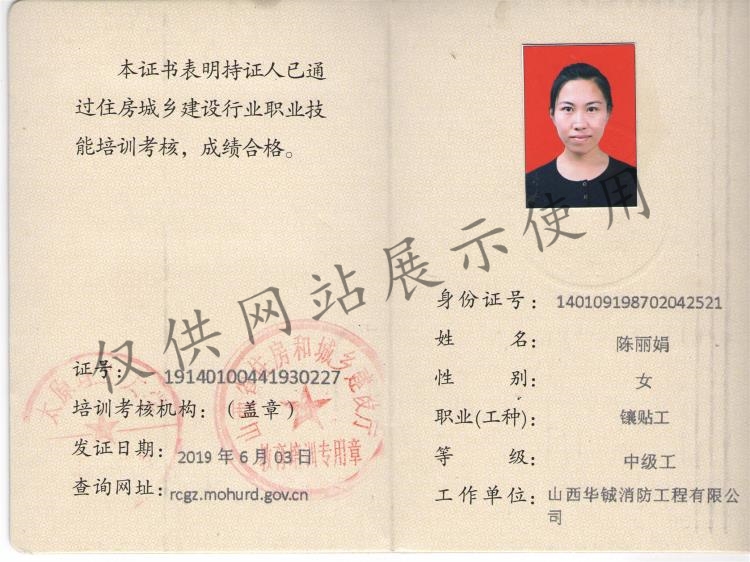 本证书表明持证人已通
过住房城乡建设行业职业技
能培训考核，成绩合格。
证号：19140100441930227
培训考核机构：（盖章）
发证日期：2019 年 6 月 03 日
查询网址：rcgz.mohurd.gov.cn
山西省住房和城乡建设厅
教育培训专用章
仅供网站展示使用
身份证号：140109198702042521
姓名：陈丽娟
性别：女
职业(工种)：镶贴工
等级：中级工
工作单位：山西华铖消防工程有限公
司